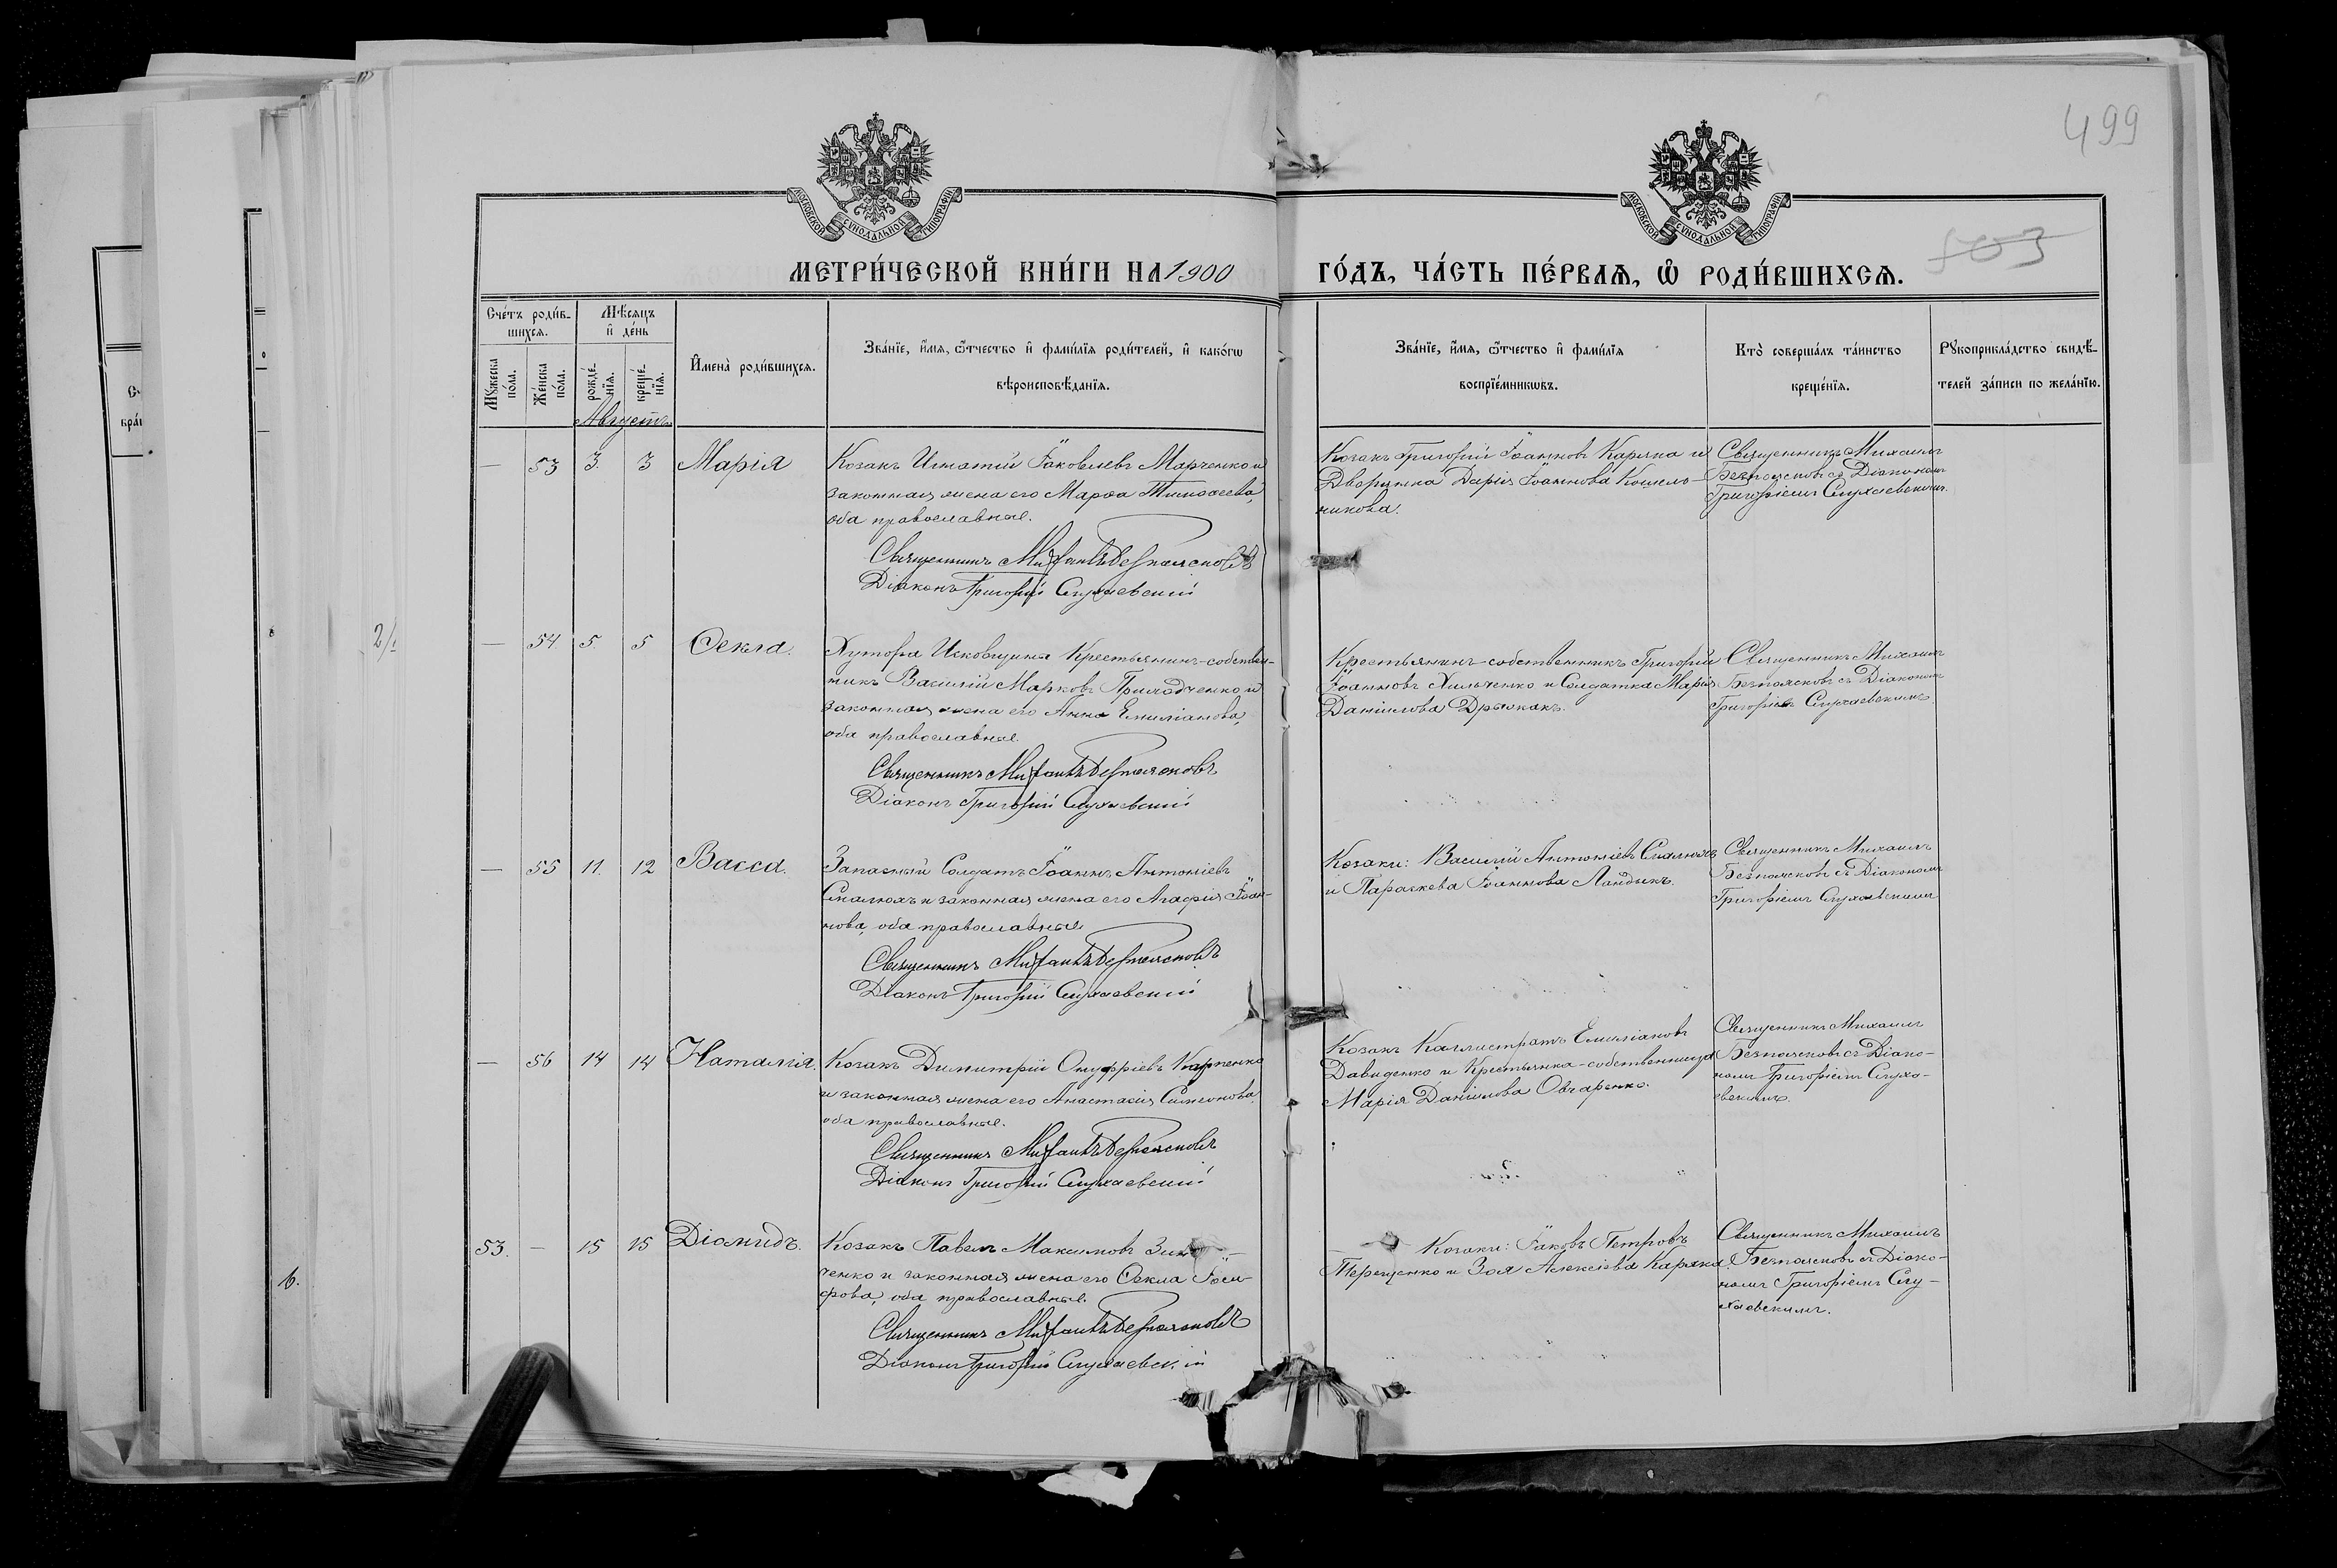 499
503
МОСКОВСКОЙ СѴНОДАЛЬНОЙ ТИПОГРАФІИ
МОСКОВСКОЙ СѴНОДАЛЬНОЙ ТИПОГРАФІИ
МЕТРИ́ЧЕСКОЙ КНИ́ГИ НА 1900 ГО́ДЪ, ЧА́СТЬ ПЕ́РВАѦ, Ѽ РОДИ́ВШИХСѦ.
Сче́тъ роди́в-
шихсѧ.
Мꙋ́жеска
по́ла.
Же́нска
по́ла.
Мѣ́сѧцъ
и҆ де́нь
рожде́-
нїѧ.
креще́-
нїѧ.
И҆мена̀ роди́вшихсѧ.
Зва́нїе, и҆́мѧ, ѻ҆́тчество и҆ фами́лїѧ роди́телей, и҆ како́гѡ
вѣроисповѣ́данїѧ.
Зва́нїе, и҆́мѧ, ѻ҆́тчество и҆ фами́лїѧ
воспрїе́мникѡвъ.
Кто̀ соверша́лъ та́инство
креще́нїѧ.
Рꙋкоприкла́дство свидѣ́-
телей за́писи по жела́нїю.
Августъ
— 53 3. 3 Марія
Козакъ Игнатій Іаковлевъ Марченко и
законная жена его Марѳа Тимоѳеева,
оба православные.
Священникъ Михаилъ Безпоясковъ
Діаконъ Григорій Слухаевскій
Козакъ Григорій Іоанновъ Каряка и
Дворянка Дарія Іоаннова Кошело-
никова.
Священникъ Михаилъ
Безпоясковъ съ Діакономъ
Григоріемъ Слухаевскимъ.
— 54 5. 5 Ѳекла.
Хутора Исковщина Крестьянинъ-собствен-
никъ Василій Марковъ Приходченко и
законная жена его Анна Емиліанова,
оба православные.
Священникъ Михаилъ Безпоясковъ
Діаконъ Григорій Слухаевскій
Крестьянинъ-собственникъ Григорій
Іоанновъ Хильченко и Солдатка Марія
Даніилова Дрыжакъ.
Священникъ Михаилъ
Безпоясковъ съ Діакономъ
Григоріемъ Слухаевскимъ.
— 55 11. 12 Васса.
Запасный Солдатъ Іоаннъ Антоніевъ
и законная жена его Агафія Іоан-
нова, оба православные.
Священникъ Михаилъ Безпоясковъ
Діаконъ Григорій Слухаевскій
Козаки: Василій Антоніевъ
и Параскева Іоаннова Ландыкъ.
Священникъ Михаилъ
Безпоясковъ съ Діакономъ
Григоріемъ Слухаевскимъ
— 56 14 14 Наталія.
Козакъ Димитрій Онуфріевъ Карпенко
и законная жена его Анастасія Симеонова,
оба православные.
Священникъ Михаилъ Безпоясковъ
Діаконъ Григорій Слухаевскій
Козакъ Каллистратъ Емиліановъ
Давиденко и Крестьянка-собственница
Марія Даніилова Овчаренко.
Священникъ Михаилъ
Безпоясковъ съ Діако-
номъ Григоріемъ Слуха-
евскимъ.
53. — 15 15 Діомидъ.
Козакъ Павелъ Максимовъ Зин-
ченко и законная жена его Ѳекла Іоси-
фова, оба православные.
Священникъ Михаилъ Безпоясковъ
Діаконъ Григорій Слухаевскій
Козаки: Іаковъ Петровъ
Терещенко и Зоя Алексіева Каряка.
Священникъ Михаилъ
Безпоясковъ съ Діако-
номъ Григоріемъ Слу-
хаевскимъ.